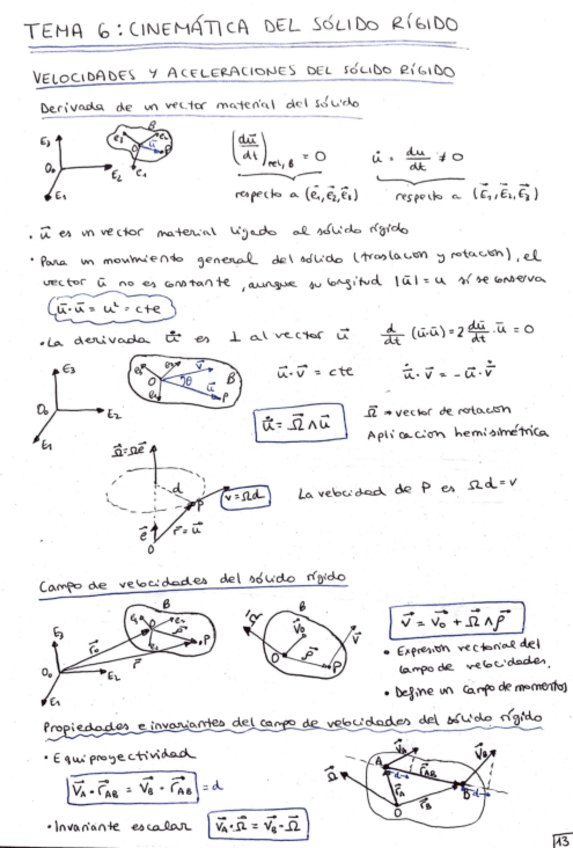 TEMA 6: CINEMÁTICA DEL SÓLIDO RÍGIDO
VELOCIDADES Y ACELERACIONES DEL SÓLIDO RÍGIDO
Derivada de un vector material del sólido
E₃ O₀ E₂ E₁ B e₃ e₂ O ū P e₁
(dū/dt)rel,B = 0
respecto a (e⃗₁, e⃗₂, e⃗₃)
u̇ = du/dt ≠ 0
respecto a (E⃗₁, E⃗₂, E⃗₃)
· u⃗ es un vector material ligado al sólido rígido
· Para un movimiento general del sólido (traslacion y rotacion), el
vector ū no es constante, aunque su longitud |ū| = u sí se conserva
ū·ū = u² = cte
· La derivada u̇⃗ es ⊥ al vector u⃗
d/dt (ū·ū) = 2 dū/dt · ū = 0
E₃ O₀ E₂ E₁ e₃ e₂ v⃗ O θ u⃗ P B
u⃗·v⃗ = cte
u̇⃗·v⃗ = -u⃗·v̇⃗
u̇⃗ = Ω⃗ ∧ u⃗
Ω⃗ → vector de rotacion
Aplicacion hemisimétrica
Ω⃗ = Ωe⃗
d
P
v = Ωd
e⃗
r⃗ = u⃗
O
La velocidad de P es Ωd = v
Campo de velocidades del sólido rígido
E₃ O₀ E₂ E₁ r⃗₀ r⃗ B e₃ e₂ O e₁ ρ⃗ P
Ω⃗ B v⃗₀ O ρ⃗ P v⃗
v⃗ = v⃗₀ + Ω⃗ ∧ ρ⃗
· Expresión vectorial del
campo de velocidades.
· Define un campo de momentos
Propiedades e invariantes del campo de velocidades del sólido rígido
· Equiproyectividad
v⃗A · r⃗AB = v⃗B · r⃗AB = d
Ω⃗ A v⃗A d r⃗AB r⃗A O r⃗B B d v⃗B
· Invariante escalar
v⃗A · Ω⃗ = v⃗B · Ω⃗
13